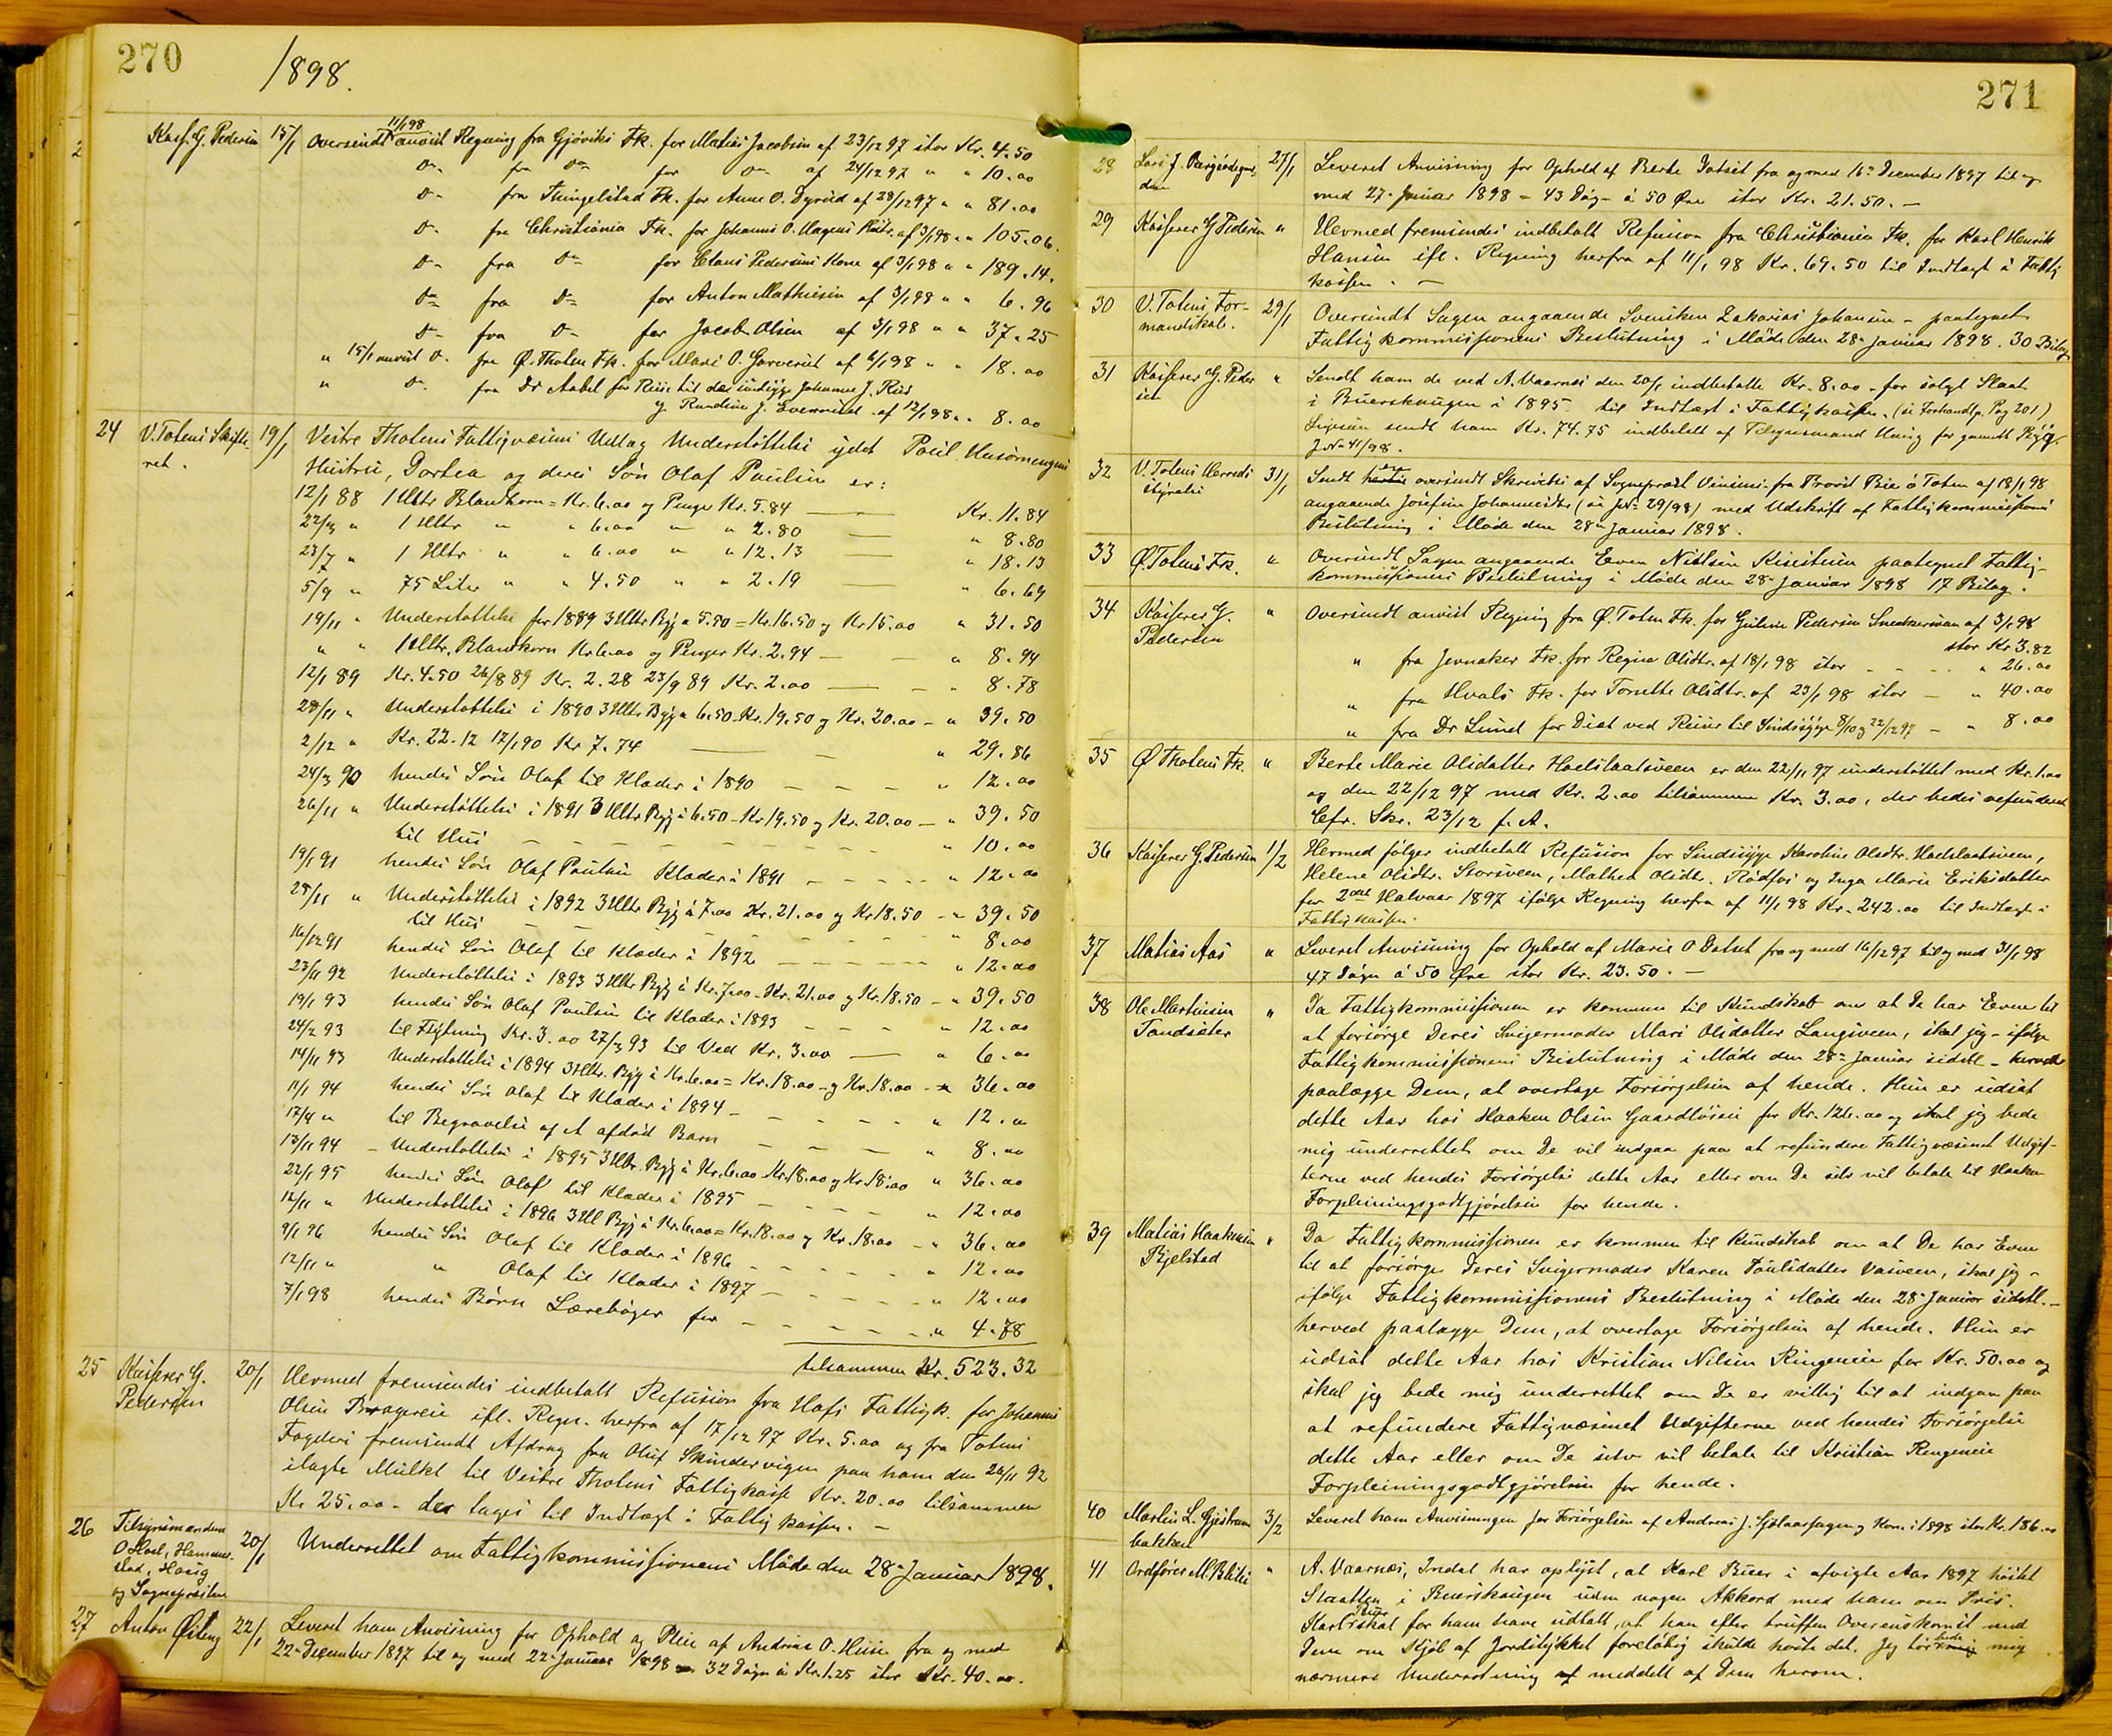 270
1898.
Kass. G. Pedersen 15/1 Oversendt 11/1 98 anvist Regning fra Gjøviks Fk. for Matias Jacobsen af 23/12 97 stor Kr. 4.50
Do fra Do for Do af 24/12 97 " " 10.00
Do fra Thingelstad Fk. for Anne O. Dyrud af 28/12 97 " " 81.00
Do fra Christiania Fk. for Johannes O. Hagens af 3/1 98 " " 105.06.
Do fra Do for Claus Pedersens Kone af 3/1 98 " " 189.14.
Do fra Do for Anton Mathiesen af 3/1 98 " " 6.96
Do fra Do for Jacob Olsen af 3/1 98 " " 37.25
" 15/1 anvist Do fra Ø. Thoten Fk. for Mari O. Garverud af 6/1 98 " " 18.00
" Do fra Dr Aabel for Reise til de sindsyge Johanne J. Rud
og Rundine J. Evenrud af 12/1 98 " " 8.00
24 V. Totens Skifteret. 19/1 Vestre Thotens Fattigvæsens Udlæg Understøttelse ydet Poul Husomengens
Hustru, Dortea og deres Søn Olaf Paulsen er:
12/1 88 1 Hltr Blandkorn = Kr. 6.00 og Penge Kr. 5.84 — Kr. 11.84
22/3 " 1 Hltr " " 6.00 " " 2.80 — " 8.80
23/7 " 1 Hltr " " 6.00 " " 12.13 — " 18.13
5/9 " 75 Liter " " 4.50 " " 2.19 — " 6.69
19/11 " Understøttelse for 1889 3 Hltr Byg a 5.50 = Kr. 16.50 og Kr 15.00 " 31.50
" " 1 Hltr. Blandkorn Kr 6.00 og Penge Kr. 2.94 — — " 8.94
12/1 89 Kr. 4.50 26/8 89 Kr. 2.28 23/9 89 Kr. 2.00 — — " 8.78
28/11 " Understøttelse i 1890 3 Hltr Byg a 6.50 - Kr. 19.50 og Kr. 20.00 - " 39.50
2/12 " Kr. 22.12 12/1 90 Kr 7.74 — — " 29.86
24/3 90 hendes Søn Olaf til Klæder i 1890 - - - " 12.00
26/11 " Understøttelse i 1891 3 Hltr Byg a 6.50 - Kr 19.50 og Kr. 20.00 - " 39.50
til Hus - - - - - " 10.00
19/1 91 hendes Søn Olaf Paulsen Klæder i 1891 - - - - " 12.00
25/11 " Understøttelse i 1892 3 Hltr Byg á 7.00 Kr. 21.00 og Kr 18.50 - " 39.50
til Hus - - - - - " 8.00
16/12 91 hendes Søn Olaf til Klæder i 1892 - - - - " 12.00
23/11 92 Understøttelse i 1893 3 Hltr Byg á Kr. 7.00 - Kr. 21.00 og Kr. 18.50 - " 39.50
19/1 93 hendes Søn Olaf Paulsen til Klæder i 1893 - - - " 12.00
24/2 93 til Flytning Kr. 3.00 27/3 93 til Ved Kr. 3.00 — " 6.00
14/11 93 Understøttelse i 1894 3 Hltr. Byg á Kr. 6.00 = Kr. 18.00 og Kr. 18.00 - " 36.00
11/1 94 hendes Søn Olaf til Klæder i 1894 - - - - " 12.00
17/4 " til Begravelse af et afdød Barn - - - " 8.00
13/11 94 - Understøttelse i 1895 3 Hltr. Byg á Kr. 6.00 Kr. 18.00 og Kr. 18.00 " 36.00
22/1 95 hendes Søn Olaf til Klæder i 1895 - - - - " 12.00
12/11 " Understøttelse i 1896 3 Hl Byg á Kr. 6.00 = Kr. 18.00 og Kr. 18.00 - " 36.00
9/1 96 hendes Søn Olaf til Klæder i 1896 - - - - " 12.00
12/11 " " Olaf til Klæder i 1897 - - - - " 12.00
7/1 98 hendes Børn Lærebøger for - - - - " 4.78
tilsammen Kr. 523.32
25 Kasserer G. Pedersen 20/1 Hermed fremsendes indbetalt Refusion fra Hofs Fattigk. for Johannes
Olsen Brageneie ifl. Regn. herfra af 17/12 97 Kr. 5.00 og fra Totens
Fogderi fremsendt Afdrag fra Oluf Skindervigen paa ham den 26/11 92
ilagte Mulkt til Vestre Thotens Fattigkasse Kr. 20.00 tilsammen
Kr 25.00 - der tages til Indtægt i Fattigkassen. -
26 Tilsynsmændene O Hoel, Hammerstad, Hasig og Sognepresten 20/1 Underrettet om Fattigkommissionens Møde den 28de Januar 1898.
27 Anton Østeng 22/1 Leveret ham Anvisning for Ophold og Pleie af Andreas O. Huse fra og med
22de December 1897 til og med 22de Januar 1898 32 Døgn á Kr. 1.25 stor Kr. 40.00.
271
28 Lars J. 27/1 Leveret Anvisning for Ophold af Berte Dotset fra og med 16de December 1897 til og
med 27de Januar 1898 - 43 Døg - á 50 Øre stor Kr. 21.50. -
29 Kasserer G Pedersen " Hermed fremsendes indbetalt Refusion fra Christiania Fk. for Karl Henrik
Hansen ifl. Regning herfra af 11/1 98 Kr. 69.50 til Indtægt i Fattig
kassen. -
30 V. Totens Formandskab. 29/1 Oversendt Sagen angaaende Svensken Zakarias Johansen - paategnet
Fattigkommissionens Beslutning i Møde den 28de Januar 1898. 30 Bilag
31 Kasserer G. Pedersen " Sendt ham de ved A. Vaarnes den 20/1 indbetalte Kr. 8.00 - for solgt Slaat
i Buerskaugen i 1895 til Indtægt i Fattigkassen. (se Forhandlp. Pag 201)
Ligesaa sendt ham Kr. 74.75 indbetalt af Tilsynsmand Hasig for
J.No 41/98.
32 V. Totens Herredsstyrelse 31/1 Sendt oversendt Skrivelse af Sogneprest fra Provst Bie Ø Toten af 18/1 98
angaaende Josefine Johannesdtr (se JNo 29/98) med Udskrift af Fattigkommissionens
Beslutning i Møde den 28de Januar 1898.
33 Ø. Totens Fk. " Oversendt Sagen angaaende Even Nilsen paategnet Fattig-
kommissionens Beslutning i Møde den 28de Januar 1898 17 Bilag.
34 Kasserer G. Pedersen " Oversendt anvist Regning fra Ø. Toten Fk. for Guline Pedersen Snekkersveen af 3/1 98
stor Kr 3.82
" fra Jevnaker Fk. for Regine Olsdtr. af 18/1 98 stor - - - - " 26.00
" fra Hvals Fk. for Tonette Olsdtr. af 23/1 98 stor - " 40.00
" fra Dr Lund for Diæt ved Reiser til Sindssyge 8/10 og 22/12 97 - " 8.00
35 Ø Thotens Fk. " Berte Marie Olsdatter Hoelslaatsveen er den 22/11 97 understøttet med Kr. 1.00
og den 22/12 97 med Kr. 2.00 tilsammen Kr. 3.00, der bedes refunderet
Cfr. Skr. 23/12 f. A.
36 Kasserer G. Pedersen 1/2 Hermed følger indbetalt Refusion for Sindssyge Karoline Olsdtr. Hoelslaatsveen,
Helene Olsdtr. Storsveen, Mathea Olsdtr. Rødfos og Inga Marie Eriksdatter
for 2det Halvaar 1897 ifølge Regning herfra af 11/1 98 Kr. 242.00 til Indtægt i
Fattigkassen.
37 Matias Aas " Leveret Anvisning for Ophold af Marie O Dotset fra og med 16/12 97 til og med 31/1 98
47 Døgn á 50 Øre stor Kr. 23.50. -
38 Ole Martinsen Tandsæter " Da Fattigkommissionen er kommen til Kundskab om at De har Evne til
at forsørge Deres Svigermoder Mari Olsdatter Langsveen, skal jeg - ifølge
Fattigkommissionens Beslutning i Møde den 28de Januar sidstl. - herved
paalægge Dem, at overtage Forsørgelsen af hende. Hun er udsat
dette Aar hos Haaken Olsen Gaardløsen for Kr. 126.00 og skal jeg bede
mig underrettet om De vil indgaa paa at refundere Fattigvæsenet Udgif-
terne ved hendes Forsørgelse dette Aar eller om De selv vil betale til Haaken
Forpleiningsgodtgjørelsen for hende.
39 Matias Haakensen Bjelstad " Da Fattigkommissionen er kommen til Kundskab om at De har Evne
til at forsørge Deres Svigermoder Karen Poulsdatter Vasveen, skal jeg -
ifølge Fattigkommissionens Beslutning i Møde den 28de Januar sidstl. -
herved paalægge Dem, at overtage Forsørgelsen af hende. Hun er
udsat dette Aar hos Kristian Nilsen Ringeneie for Kr. 50.00 og
skal jeg bede mig underrettet om De er villig til at indgaa paa
at refundere Fattigvæsenet Udgifterne ved hendes Forsørgelse
dette Aar eller om De selv vil betale til Kristian Rengeneie
Forpleiningsgodtgjørelsen for hende.
40 Martin L. Gjestrumbakken 3/2 Leveret ham Anvisningen for Forsørgelsen af Andreas J. og Kone i 1898 stor Kr. 186.00
41 Ordfører M. Blilie " A. Vaarnes, Indal har oplyst, at Karl Buer i afvigte Aar 1897 høstet
Slaatten i Buerskaugen uden nogen Akkord med ham om Pris.
Karl Buer skal for ham have udtalt, at han efter truffen Overenskomst med
Dem om Kjøb af Jordstykket foreløbig skulde høste det. Jeg tør bede mig
nærmere Underretning meddelt af Dem herom.